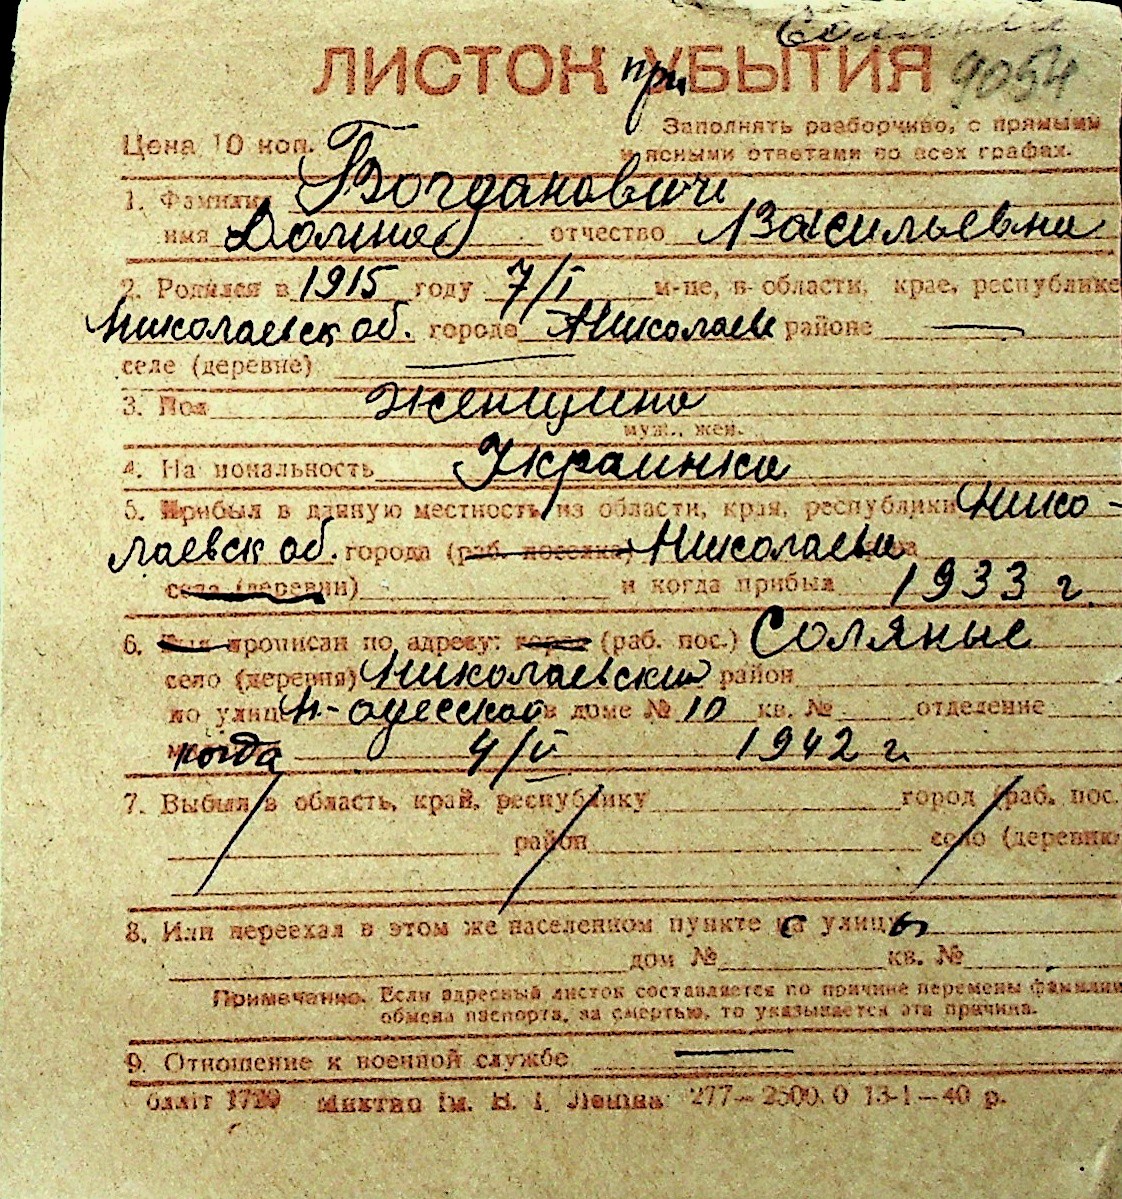 Соляные
ЛИСТОК при УБЫТИЯ 9054
Цена 10 коп. Заполнять разборчиво, с прямыми
и ясными ответами во всех графах.
1. Фамилия Богданович
имя отчество Васильевна
2. Родился в 1915 году 7/I м-це, в области, крае, республике
Николаевск об. города Николаеве районе —
селе (деревне) —
3. Пол женщина
муж., жен.
4. Национальность Украинка
5. Прибыл в данную местность из области, края, республики Нико-
лаевск об. города (раб. поселка) Николаева
села (деревни) и когда прибыл 1933 г.
6. Был прописан по адресу: город (раб. пос.) Соляные
село (деревня) Николаевский район
по улице Н-одесской в доме № 10 кв. № отделение
когда 4/V 1942 г.
7. Выбыл в область, край, республику город (раб. пос.
район село (деревня
8. Или переехал в этом же населенном пункте с улицы
дом № кв. №
Примечание. Если адресный листок составляется по причине перемены фамилии
обмена паспорта, за смертью, то указывается эта причина.
9. Отношение к военной службе —
1720 ім. В. І. Леніна 277—2500.0 13-1—40 р.